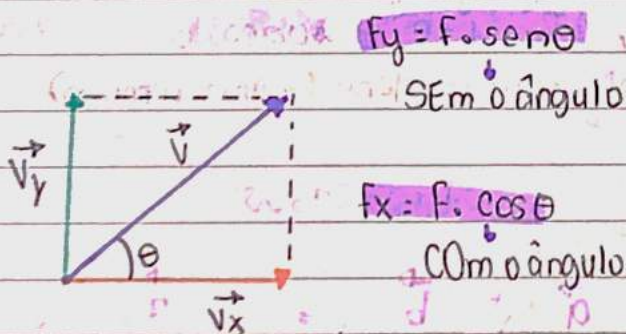 Fy = F. senθ
SEm o ângulo
V
Vy
Fx = F. cosθ
θ
COm o ângulo
Vx